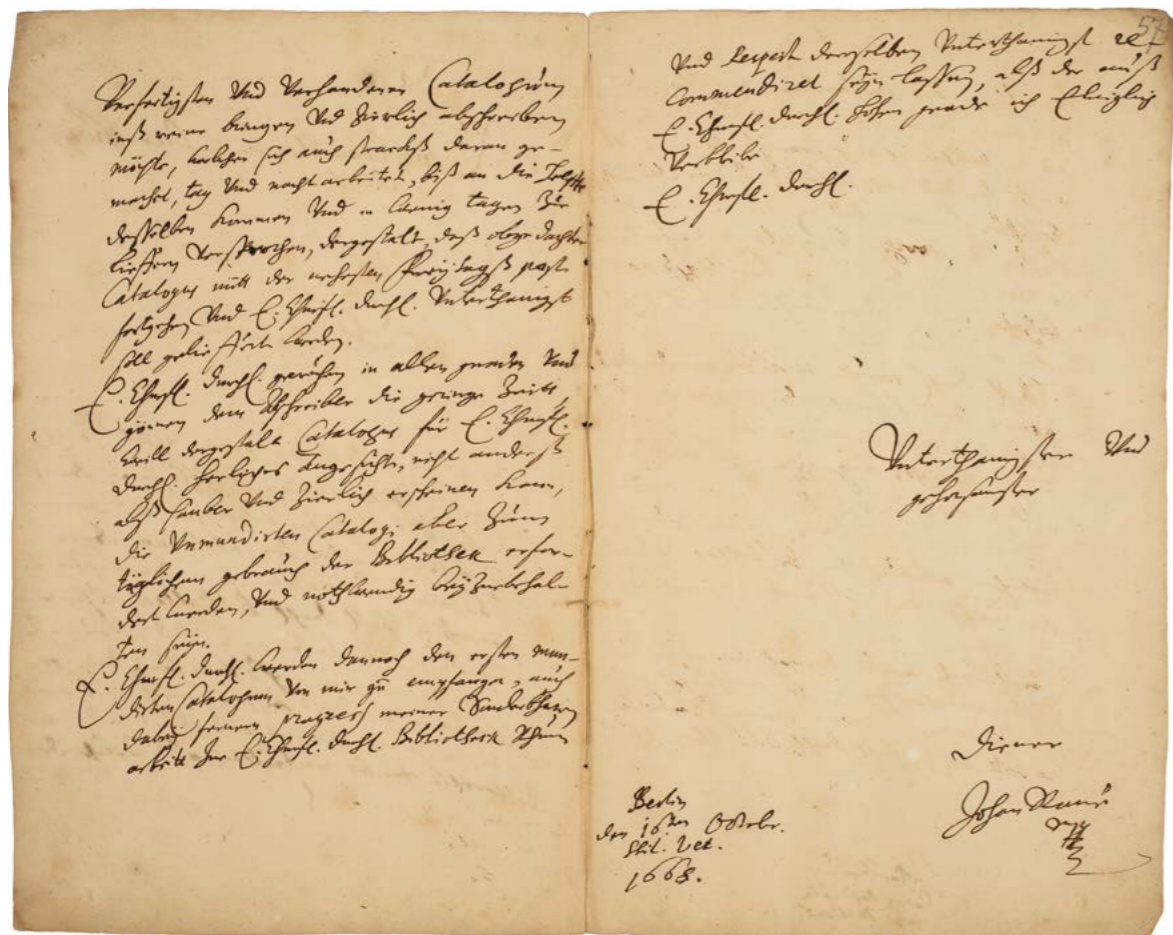 Verfertigten Vnd Verhandenen Catalogum
inß reine bringen Vnd Zierlich abschreiben
möchte, welcher sich auch strackß daran ge-
macht, tag Vnd nacht arbeitet, biß an die Helffte
desselben kommen Vnd in wenig tagen Zue
lieffern Versprochen, dergestalt, daß obgedachter
Catalogus mitt der nehesten Freijtagß post
fortgehen Vnd E. Churfl. Durchl. Vnterthänigst
soll gelieffert werden.
E. Churfl. Durchl. geruhen in allen gnaden Vnd
gönnen dem Abschreiber die geringe Zeitt,
weill dergestalt Catalogus für E. Churfl.
Durchl. herliches Angesichte, nicht anderß
alß sauber Vnd Zierlich erscheinen kann,
die Vnmundirten Catalogi aber Zum
täglichem gebrauch der Bibliotheck erfor-
dert werden, Vnd nothwendig beijzuebehal-
ten seijn.
E. Churfl. Durchl. werden dennoch den ersten mun-
dirten Catalogum Von mir zu empfangen, auch
dabeij fernern progress meiner
arbeitt Zue E. Churfl. Durchl. Bibliotheck
57
Vnd Respect derselben Vnterthänigst re-
commendiret seijn lassen, alß der auß
E. Churfl. Durchl. hohen gnade ich Ewiglich
Verbleibe
E. Churfl. Durchl.
Vnterthänigster Vnd
gehorsamster
Diener
Johan Raue
Berlin
den 16ten Octobr.
Stil. Vet.
1668.